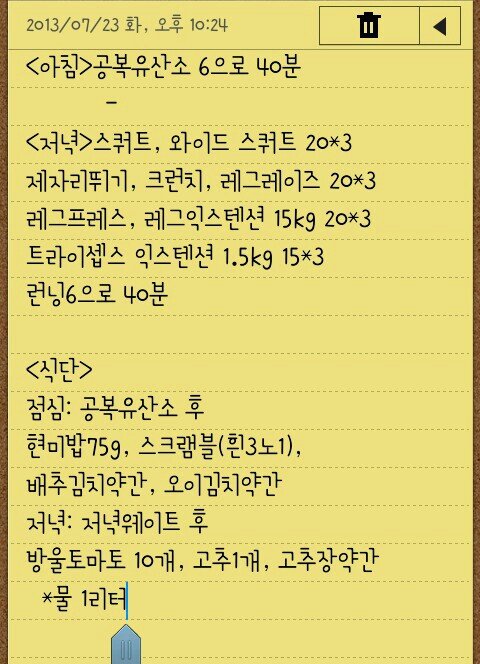 2013/07/23 화, 오후 10:24
<아침>공복유산소 6으로 40분
-
<저녁>스쿼트, 와이드 스쿼트 20*3
제자리뛰기, 크런치, 레그레이즈 20*3
레그프레스, 레그익스텐션 15kg 20*3
트라이셉스 익스텐션 1.5kg 15*3
런닝6으로 40분
<식단>
점심: 공복유산소 후
현미밥75g, 스크램블(흰3노1),
배추김치약간, 오이김치약간
저녁: 저녁웨이트 후
방울토마토 10개, 고추1개, 고추장약간
*물 1리터